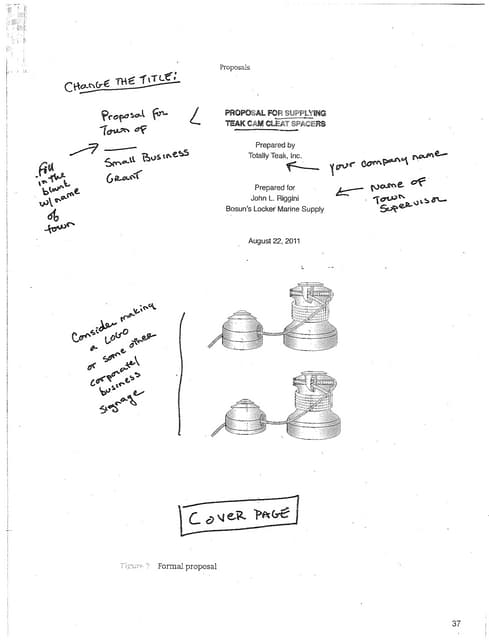 Proposals
CHANGE THE TITLE:
Proposal for
Town of
Small Business
Grant
Fill
in the
blank
w/name
of
town
PROPOSAL FOR SUPPLYING
TEAK CAM CLEAT SPACERS
Prepared by
Totally Teak, Inc.
your company name
Prepared for
John L. Riggini
Bosun's Locker Marine Supply
Name of
Town
Supervisor
August 22, 2011
Consider making
a LOGO
or some other
corporate/
business
signage
COVER PAGE
Figure 7 Formal proposal
37